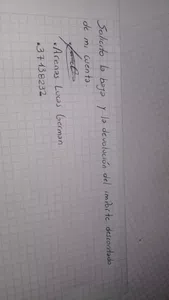 Solicito la baja y la devolución del importe descontado
de mi cuenta.
• Arenas Lucas German
• 37.138232